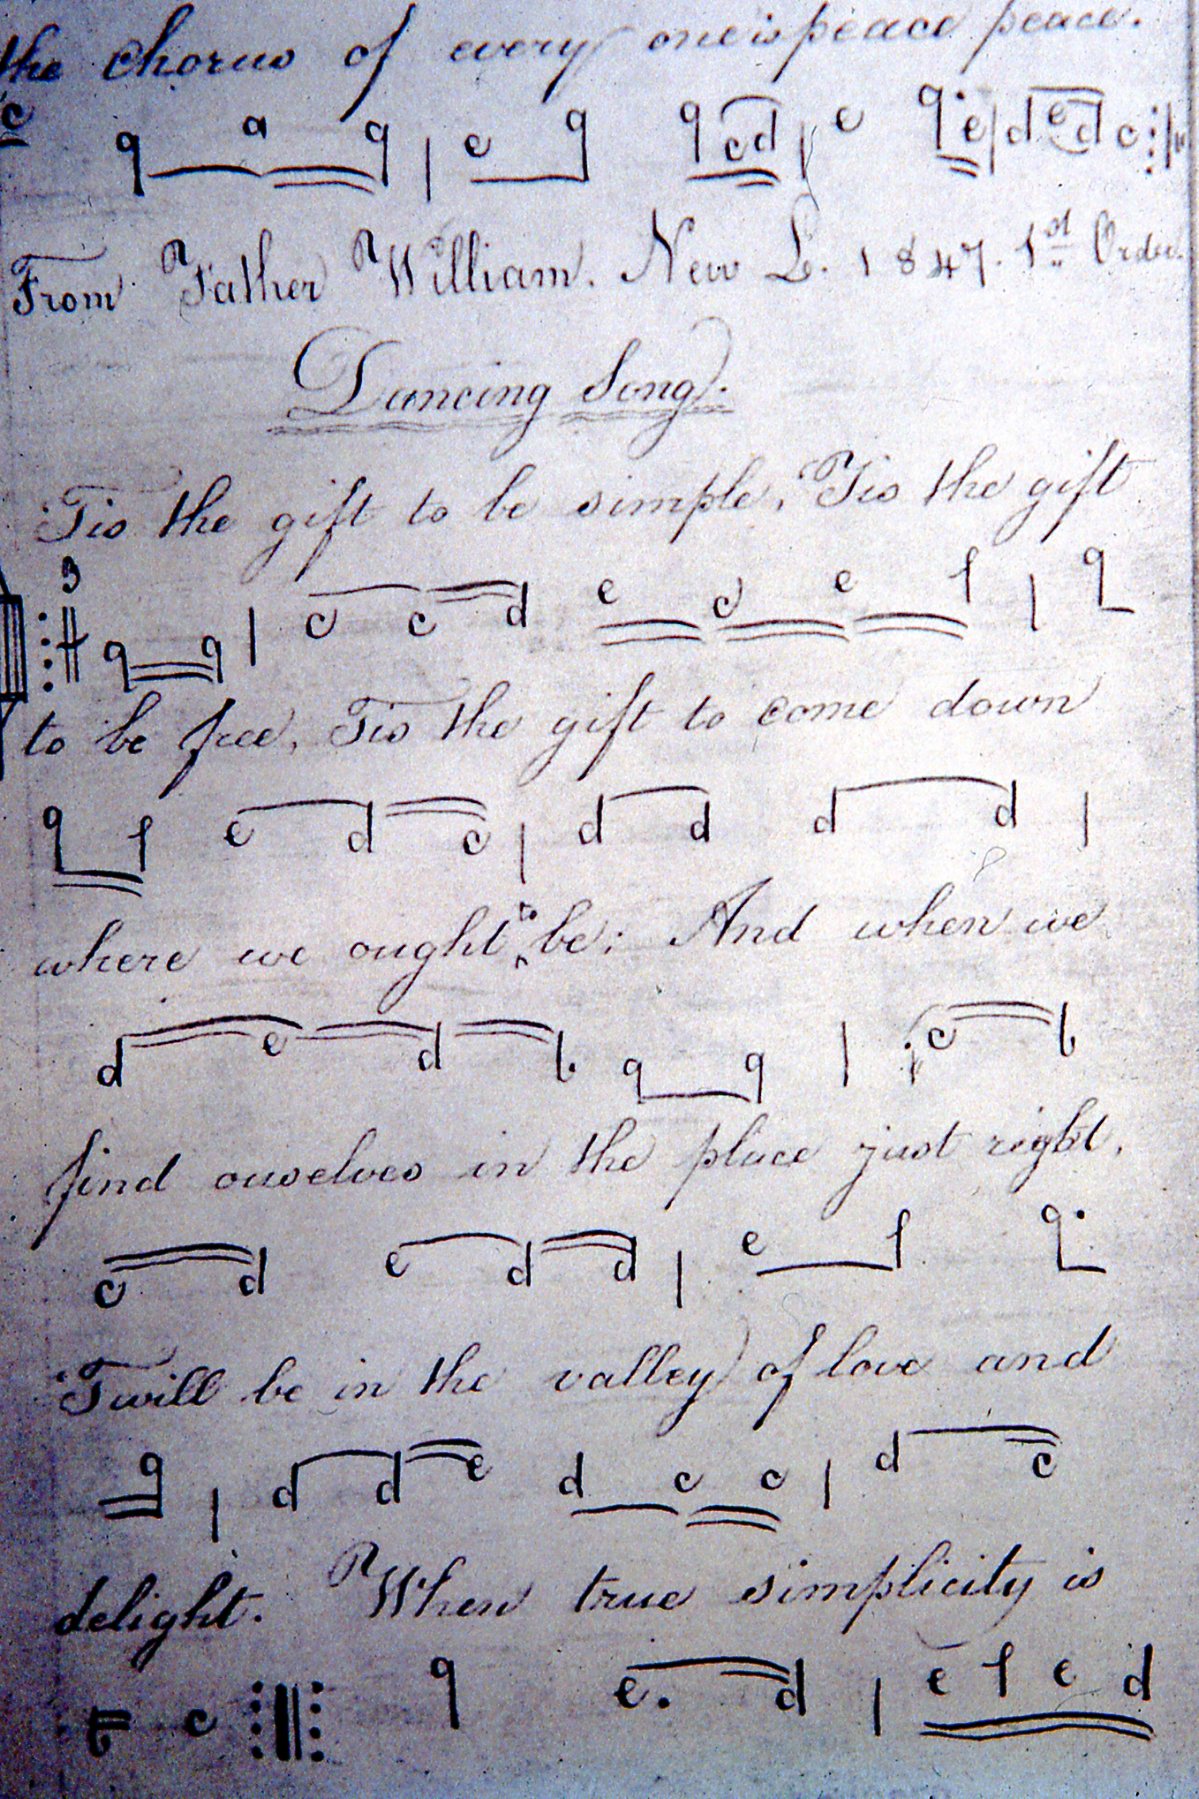 the chorus of every one is peace peace.
c g a g | e g g c d | e g. e | d e d c
From Father William. New L. 1847. 1st Order.
Dancing Song.
Tis the gift to be simple, Tis the gift
3 g g | c c d e c e f | g
to be free, Tis the gift to come down
g f e d c | d d d d |
where we ought to be: And when we
d e d b. g g | c b
find ourselves in the place just right,
c d e d d | e f g.
Twill be in the valley of love and
g | d d e d c c | d c
delight. When true simplicity is
c g e. d | e f e d